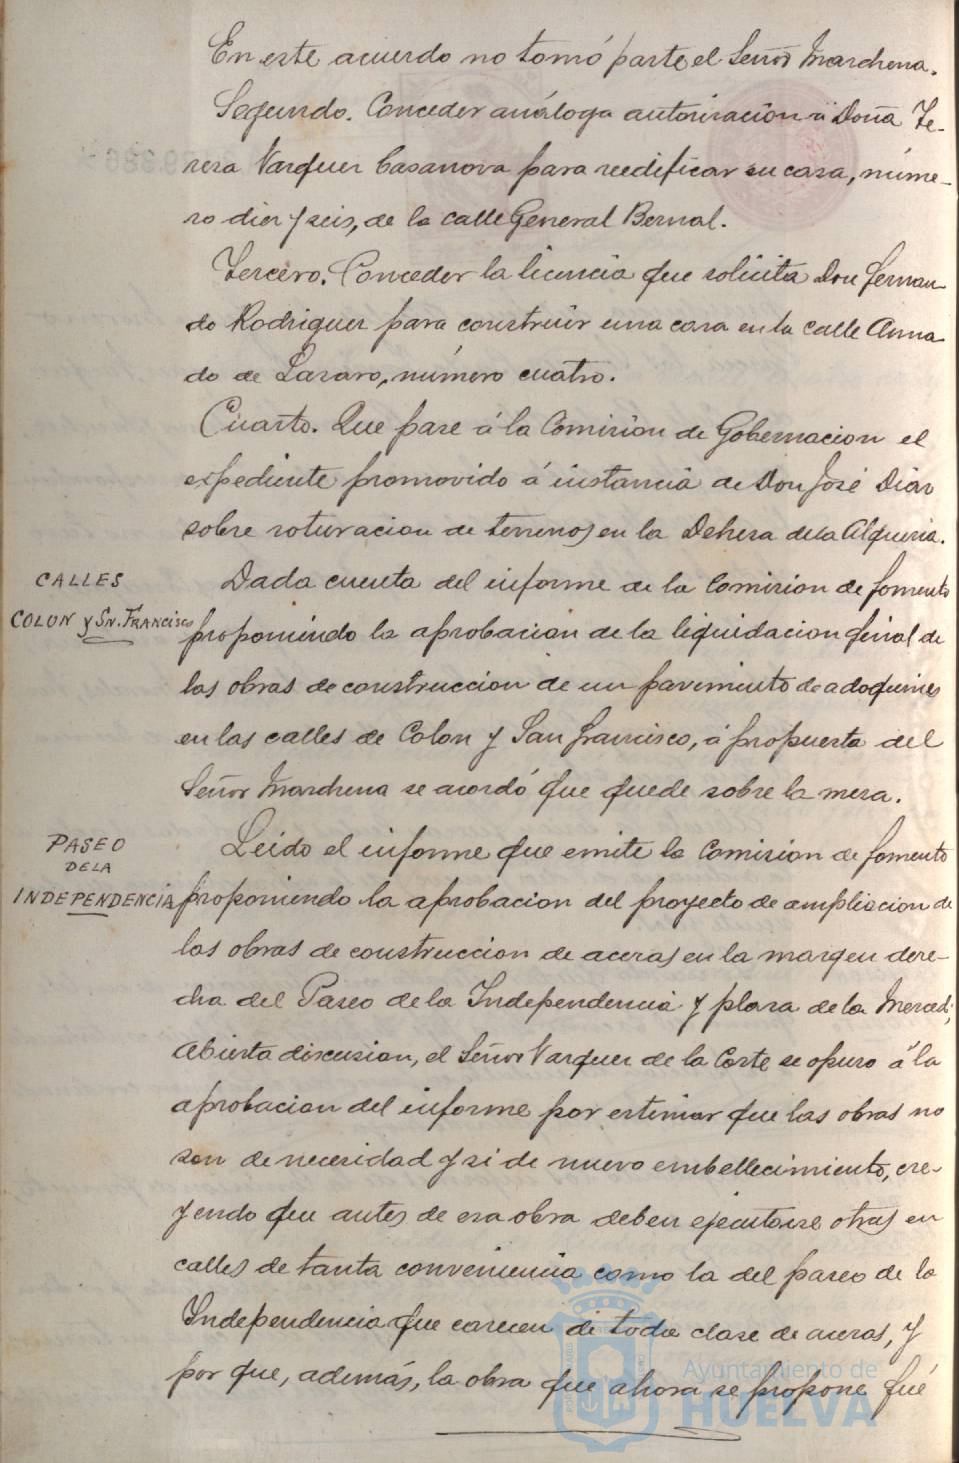 En este acuerdo no tomó parte el Señor Marchena.
Segundo. Conceder análoga autorización á Doña Te-
resa Vazquez Casanova para reedificar su casa, núme-
ro diez y seis, de la calle General Bernal.
Tercero. Conceder la licencia que solicita Don Fernan-
do Rodriguez para construir una casa en la calle Ama-
do de Lazaro, número cuatro.
Cuarto. Que pase á la Comisión de Gobernacion el
expediente promovido á instancia de Don José Diaz
sobre roturacion de terrenos en la Dehesa de la Alqueria.
CALLES
COLON y SN. FRANCISCO
Dada cuenta del informe de la Comision de fomento
proponiendo la aprobacion de la liquidacion final de
las obras de construccion de un pavimento de adoquines
en las calles de Colon y San Francisco, á propuesta del
Señor Marchena se acordó que quede sobre la mesa.
PASEO
DE LA
INDEPENDENCIA
Leido el informe que emite la Comision de fomento
proponiendo la aprobacion del proyecto de ampliacion de
las obras de construccion de aceras en la margen dere-
cha del Paseo de la Independencia y plaza de la Merced;
Abierta discusion, el Señor Vazquez de la Corte se opuso á la
aprobacion del informe por estimar que las obras no
son de necesidad y si de nuevo embellecimiento, cre-
yendo que antes de esa obra deben ejecutarse otras en
calles de tanta conveniencia como la del paseo de la
Independencia que carecen de toda clase de aceras, y
por que, además, la obra que ahora se propone fué
Ayuntamiento de
HUELVA